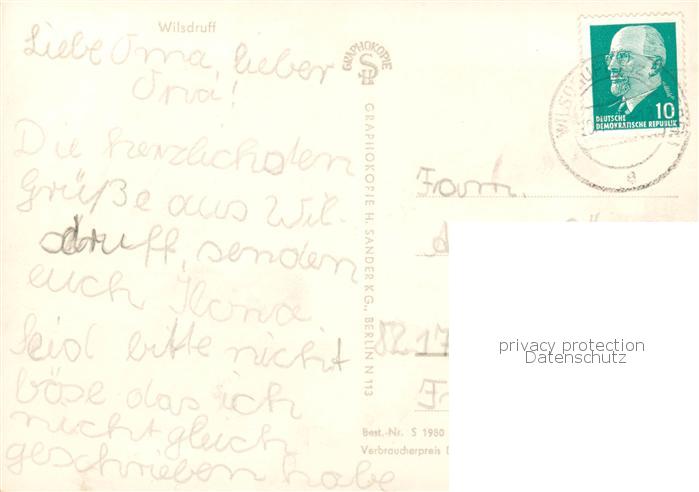 Wilsdruff
Liebe Oma, lieber
Opa!
Die herzlichsten
Grüße aus Wil-
sdruff, senden
euch Ilona
Seid bitte nicht
böse das ich
nicht gleich
geschrieben habe
GRAPHOKOPIE
GRAPHOKOPIE H. SANDER KG., BERLIN N 113
10
DEUTSCHE
DEMOKRATISCHE REPUBLIK
Fam.
Best.-Nr. S 1980
Verbraucherpreis
privacy protection
Datenschutz